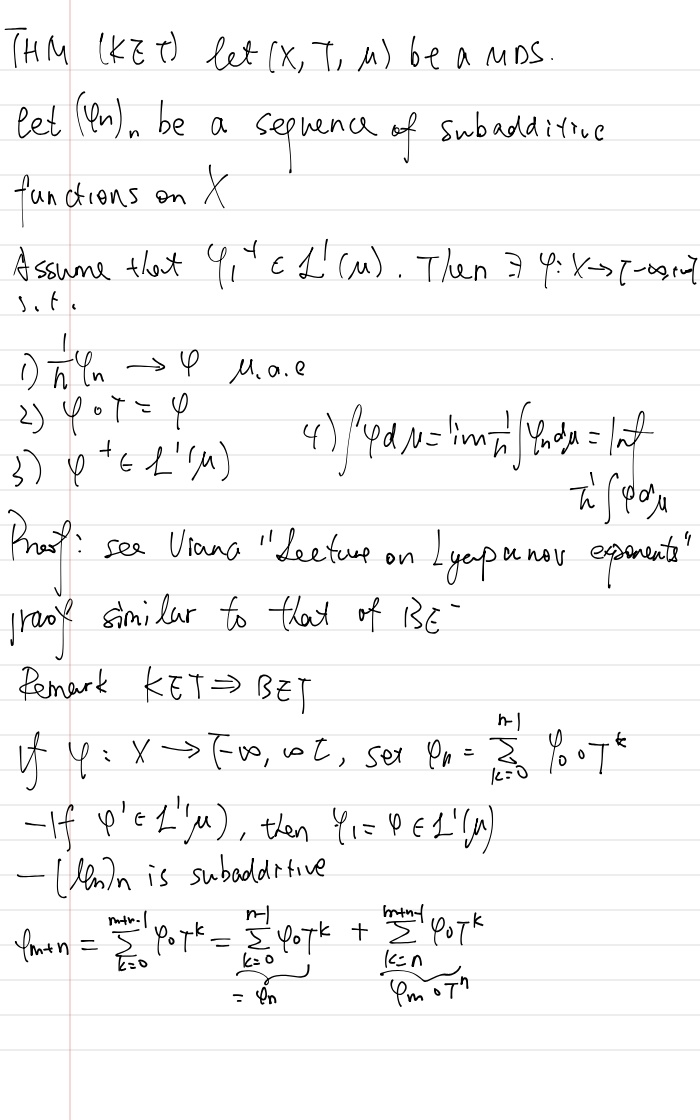 THM (KET) let (X, T, μ) be a MDS.
let (φn)n be a sequence of subadditive
functions on X
Assume that φ₁⁺ ∈ L¹(μ). Then ∃ φ: X → [-∞,+∞[
s.t.
1) 1/n φn → φ μ.a.e
2) φ∘T = φ
3) φ⁺ ∈ L¹(μ)
4) ∫φdμ = lim 1/n ∫φn dμ = Inf
1/n ∫φ dμ
Proof: see Viana "Lecture on Lyapunov exponents"
proof similar to that of BE
Remark KET ⇒ BET
If φ: X → [-∞, ∞[, set φn = Σ_{k=0}^{n-1} φ∘∘T^k
- If φ' ∈ L¹(μ), then φ₁ = φ ∈ L¹(μ)
- (φn)n is subadditive
φm+n = Σ_{k=0}^{m+n-1} φ∘T^k = Σ_{k=0}^{n-1} φ∘T^k + Σ_{k=n}^{m+n-1} φ∘T^k
= φn φm∘T^n